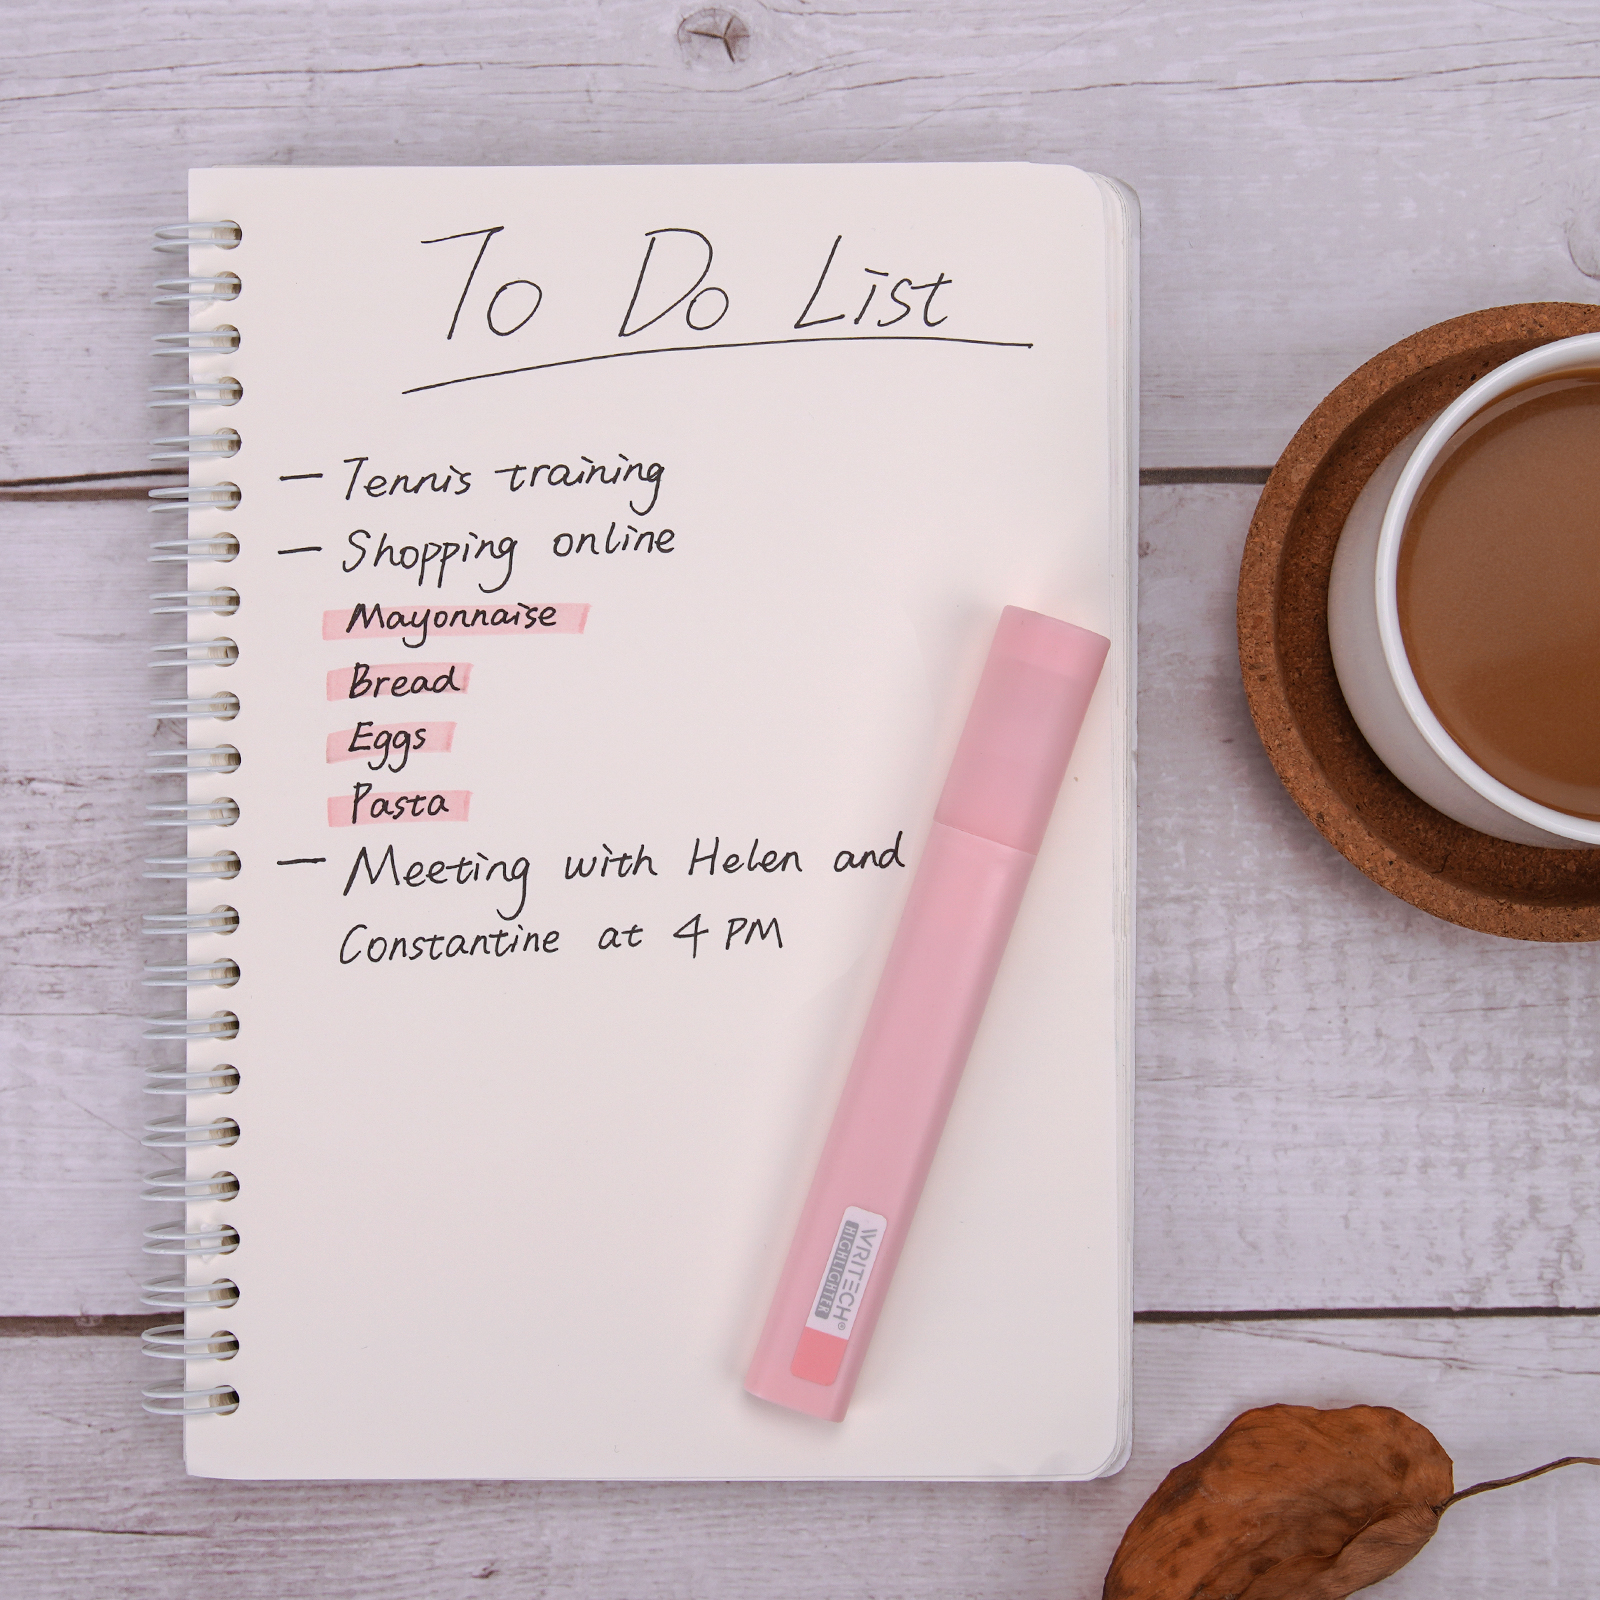 To Do List
— Tennis training
— Shopping online
Mayonnaise
Bread
Eggs
Pasta
— Meeting with Helen and
Constantine at 4 PM
WRITECH®
HIGHLIGHTER